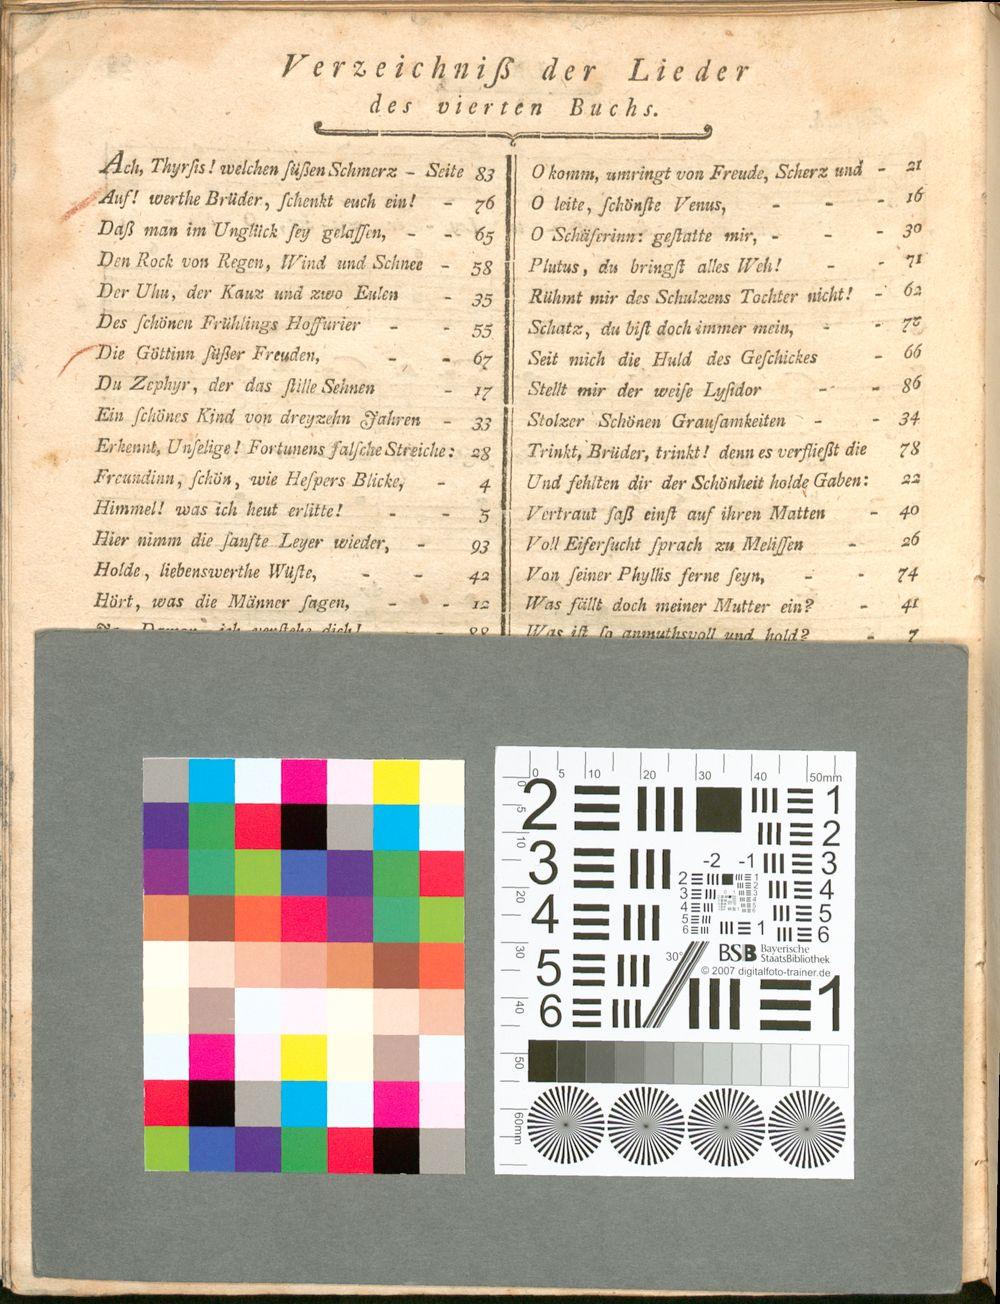 Verzeichniß der Lieder
des vierten Buchs.
Ach, Thyrſis! welchen ſüßen Schmerz - Seite 83
Auf! werthe Brüder, ſchenkt euch ein! - 76
Daß man im Unglück ſey gelaſſen, - - 65
Den Rock von Regen, Wind und Schnee - 58
Der Uhu, der Kauz und zwo Eulen - 35
Des ſchönen Frühlings Hoffurier - - 55
Die Göttinn ſüßer Freuden, - - 67
Du Zephyr, der das ſtille Sehnen - 17
Ein ſchönes Kind von dreyzehn Jahren - 33
Erkennt, Unſelige! Fortunens falſche Streiche: 28
Freundinn, ſchön, wie Heſpers Blicke, - 4
Himmel! was ich heut erlitte! - - 5
Hier nimm die ſanfte Leyer wieder, - 93
Holde, liebenswerthe Wüſte, - - 42
Hört, was die Männer ſagen, - - 12
Damon, ich verſtehe dich! - 88
O komm, umringt von Freude, Scherz und - 21
O leite, ſchönſte Venus, - - - 16
O Schäferinn: geſtatte mir, - - - 30
Plutus, du bringſt alles Weh! - - 71
Rühmt mir des Schulzens Tochter nicht! - 62
Schatz, du biſt doch immer mein, - -
Seit mich die Huld des Geſchickes - 66
Stellt mir der weiſe Lyſidor - - 86
Stolzer Schönen Grauſamkeiten - - 34
Trinkt, Brüder, trinkt! denn es verfließt die 78
Und fehlten dir der Schönheit holde Gaben: 22
Vertraut ſaß einſt auf ihren Matten - 40
Voll Eiferſucht ſprach zu Meliſſen - 26
Von ſeiner Phyllis ferne ſeyn, - - 74
Was fällt doch meiner Mutter ein? - 41
Was iſt ſo anmuthsvoll und hold? - 7
0 5 10 20 30 40 50mm
0 5 10 20 30 40 50 60mm
2 1
2
3 3
4 4
5 5
6 6
-2 -1
2 1
3 2
4 3
5 4
6 5
6
1
30°
BSB Bayerische
StaatsBibliothek
© 2007 digitalfoto-trainer.de
1